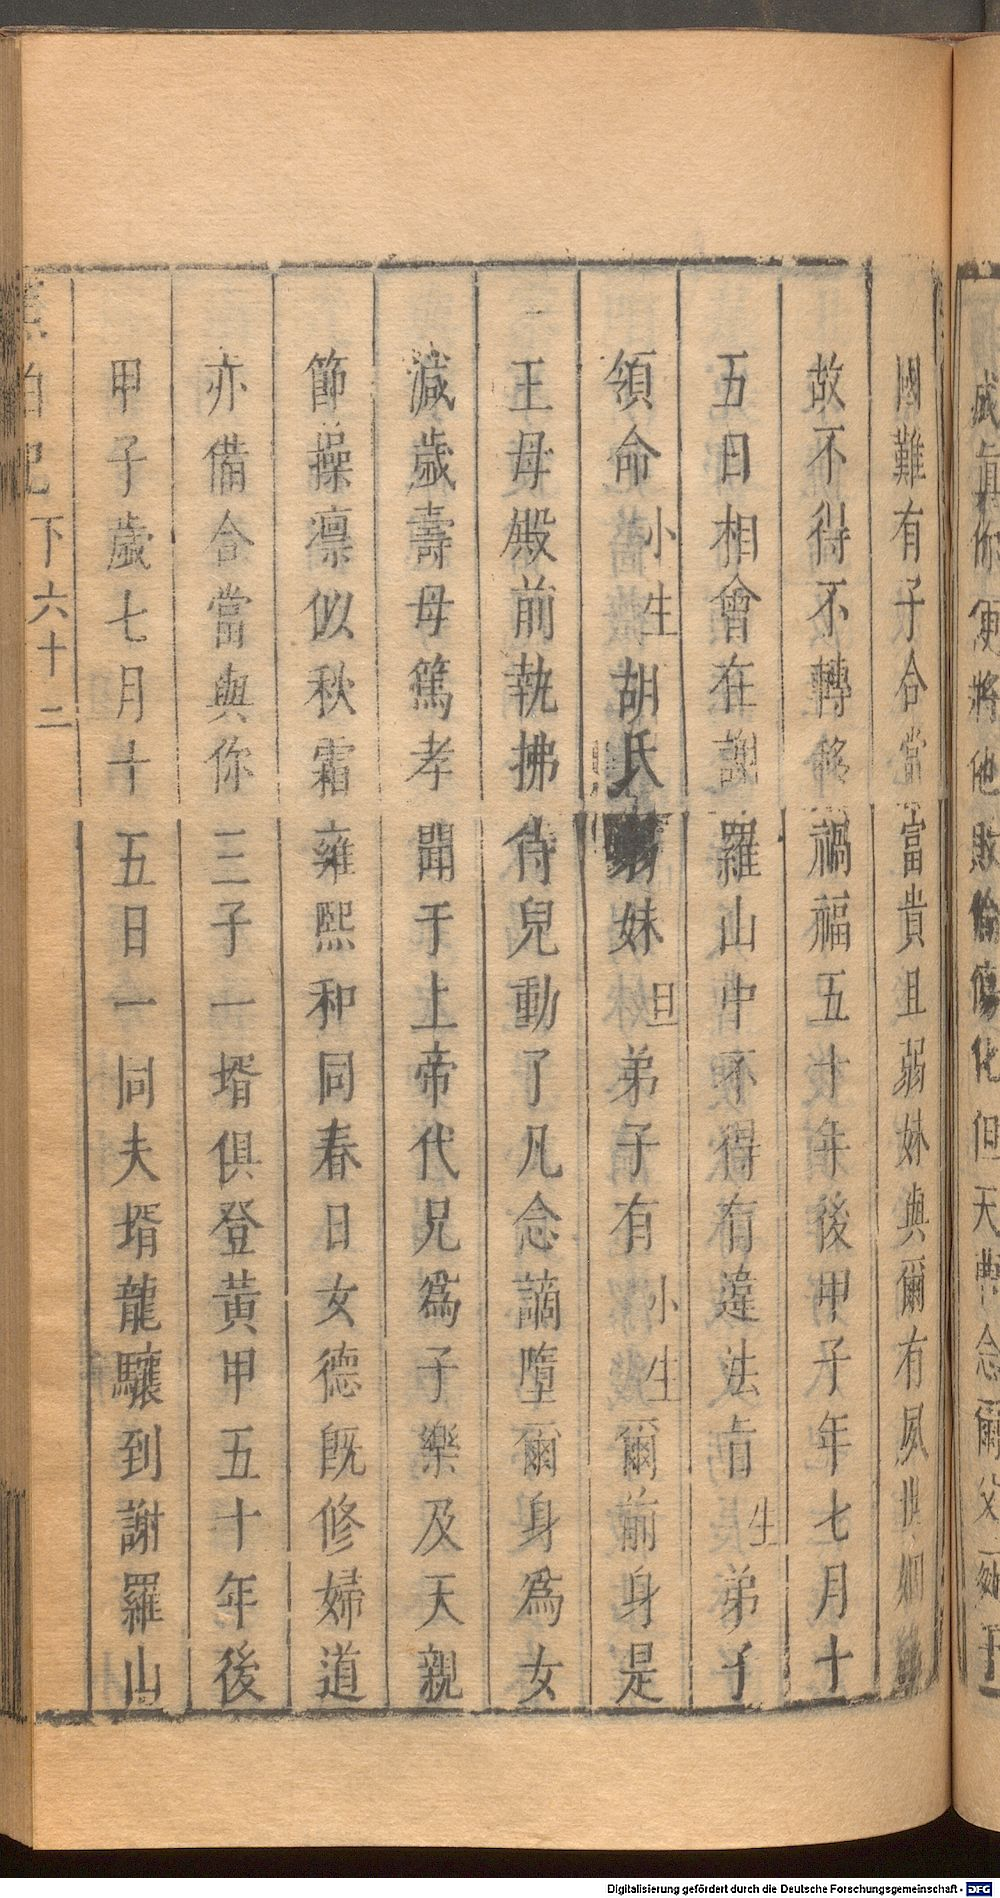 國難有子合當富貴且弱妹與爾有夙世姻
故不得不轉移禍福五十年後甲子年七月十
五日相會在謝羅山中不得有違法旨生弟子
領命小生胡氏弟妹旦弟子有小生爾前身是
王母殿前執拂侍兒動了凡念謫墮爾身爲女
減歲壽母篤孝聞于上帝代兄爲子樂及天親
節操凛似秋霜雍熙和同春日女德既修婦道
亦備合當與你三子一壻俱登黃甲五十年後
甲子歲七月十五日一同夫壻龍驤到謝羅山
下六十二
Digitalisierung gefördert durch die Deutsche Forschungsgemeinschaft - DFG